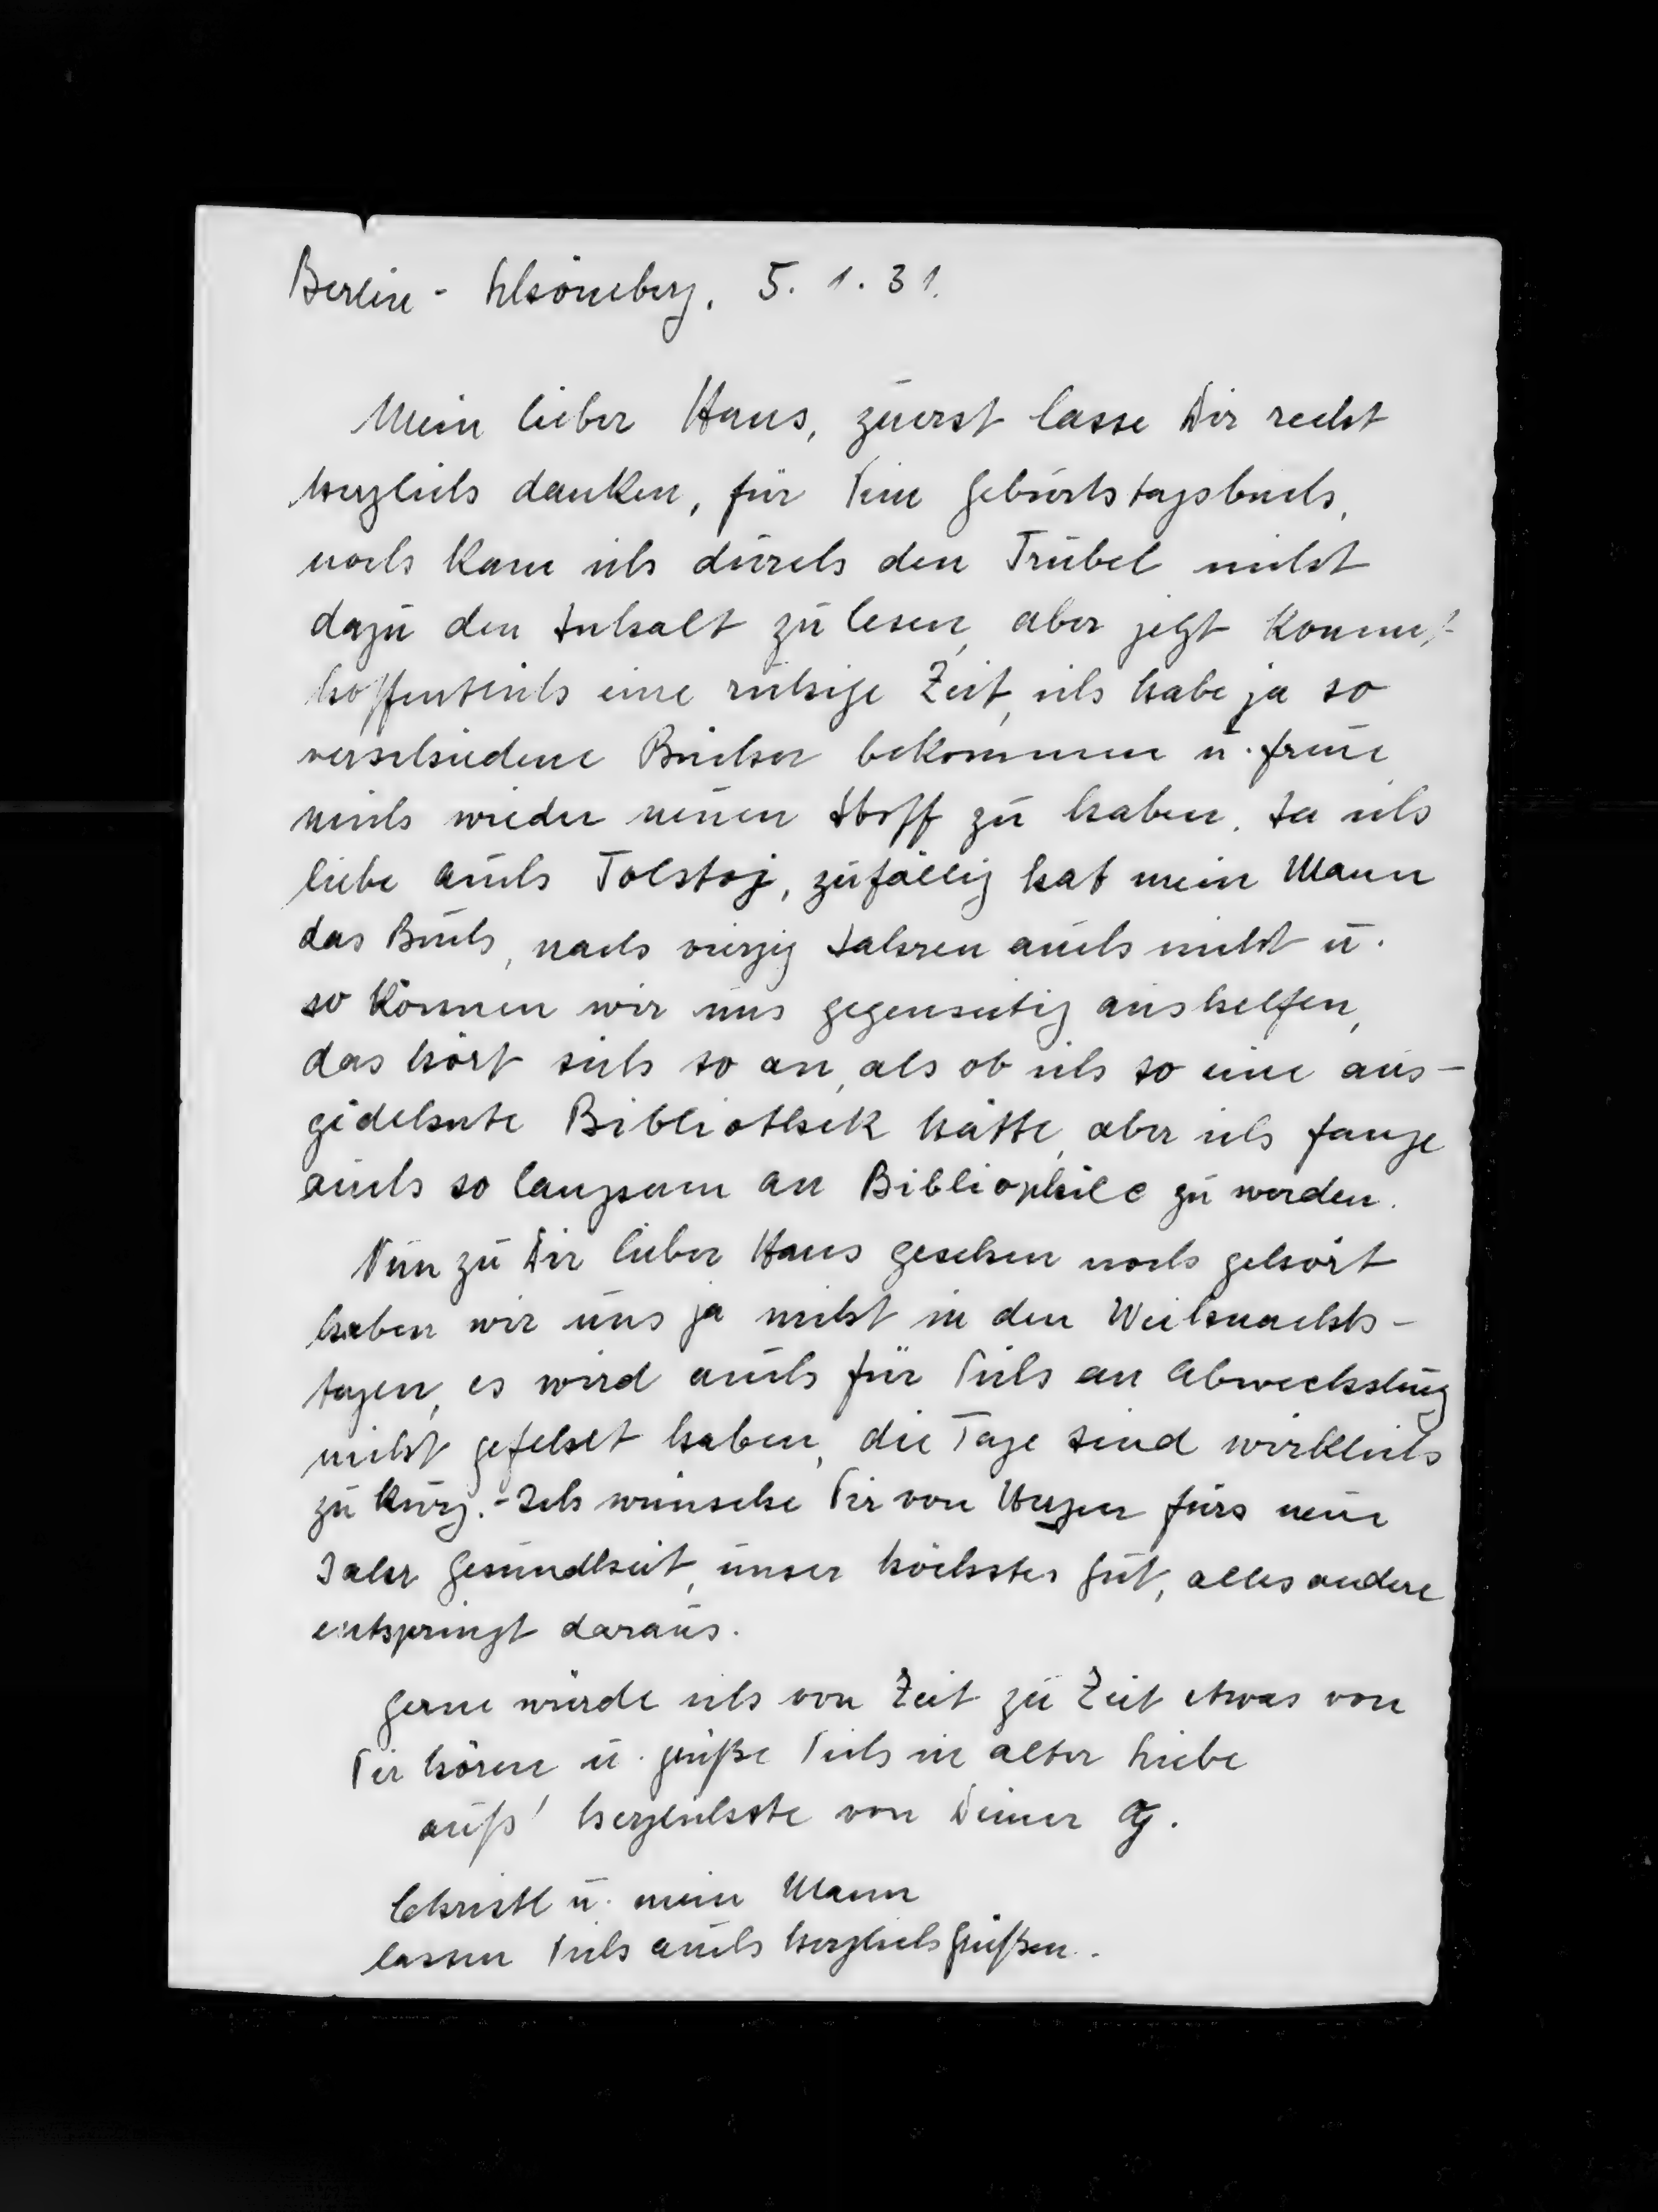 Berlin - Schöneberg, 5. 1. 31.
Mein lieber Hans, zuerst lasse Dir recht
herzlich danken, für Dein Geburtstagsbuch,
noch kam ich durch den Trubel nicht
dazu den Inhalt zu lesen, aber jetzt kommt
hoffentlich eine ruhige Zeit, ich habe ja so
verschiedene Bücher bekommen u. freue
mich wieder neuen Stoff zu haben. Ja ich
liebe auch Tolstoj, zufällig hat mein Mann
das Buch, nach vierzig Jahren auch nicht u.
so können wir uns gegenseitig aushelfen,
das hört sich so an, als ob ich so eine aus-
gedehnte Bibliothek hätte, aber ich fange
auch so langsam an Bibliophile zu werden.
Nun zu Dir lieber Hans gesehen noch gehört
haben wir uns ja nicht in den Weihnachts-
tagen, es wird auch für Dich an Abwechslung
nicht gefehlt haben, die Tage sind wirklich
zu kurz. - Ich wünsche Dir von Herzen fürs neue
Jahr Gesundheit, unser höchstes Gut, alles andere
entspringt daraus.
Gerne würde ich von Zeit zu Zeit etwas von
Dir hören u. grüße Dich in alter Liebe
aufs' herzlichste von Deiner
Christl u. mein Mann
lassen Dich auch herzlich grüßen.